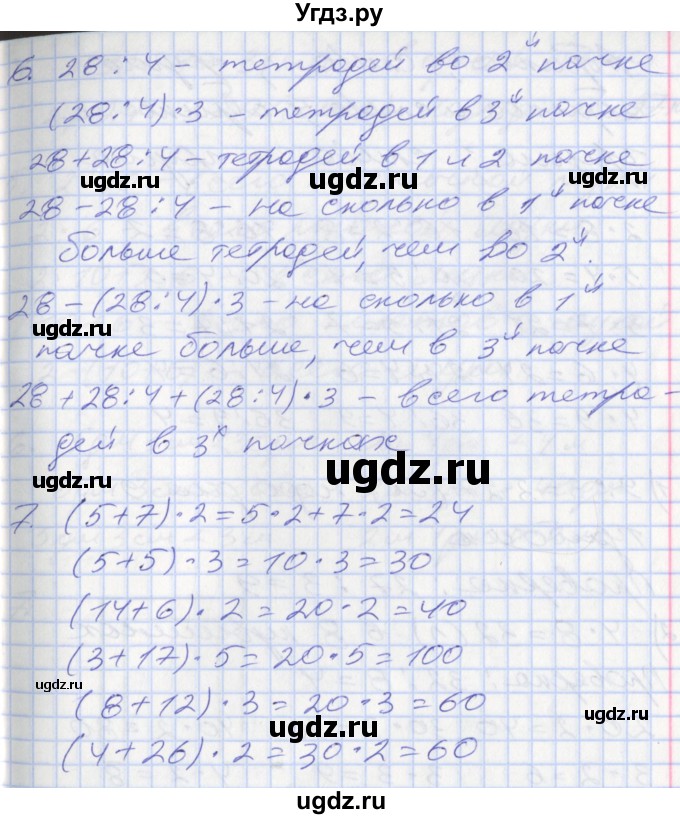 Угдз.ру
6. 28 : 4 – тетрадей во 2й пачке
(28 : 4) · 3 – тетрадей в 3й пачке
28 + 28 : 4 – тетрадей в 1 и 2 пачке
28 – 28 : 4 – на сколько в 1й пачке
больше тетрадей, чем во 2й.
28 – (28 : 4) · 3 – на сколько в 1й
пачке больше, чем в 3й пачке
28 + 28 : 4 + (28 : 4) · 3 – всего тетра-
дей в 3х пачках
7. (5 + 7) · 2 = 5 · 2 + 7 · 2 = 24
(5 + 5) · 3 = 10 · 3 = 30
(14 + 6) · 2 = 20 · 2 = 40
(3 + 17) · 5 = 20 · 5 = 100
(8 + 12) · 3 = 20 · 3 = 60
(4 + 26) · 2 = 30 · 2 = 60
ugdz.ru
ugdz.ru
ugdz.ru
ugdz.ru
ugdz.ru
ugdz.ru
ugdz.ru
ugdz.ru
ugdz.ru
ugdz.ru